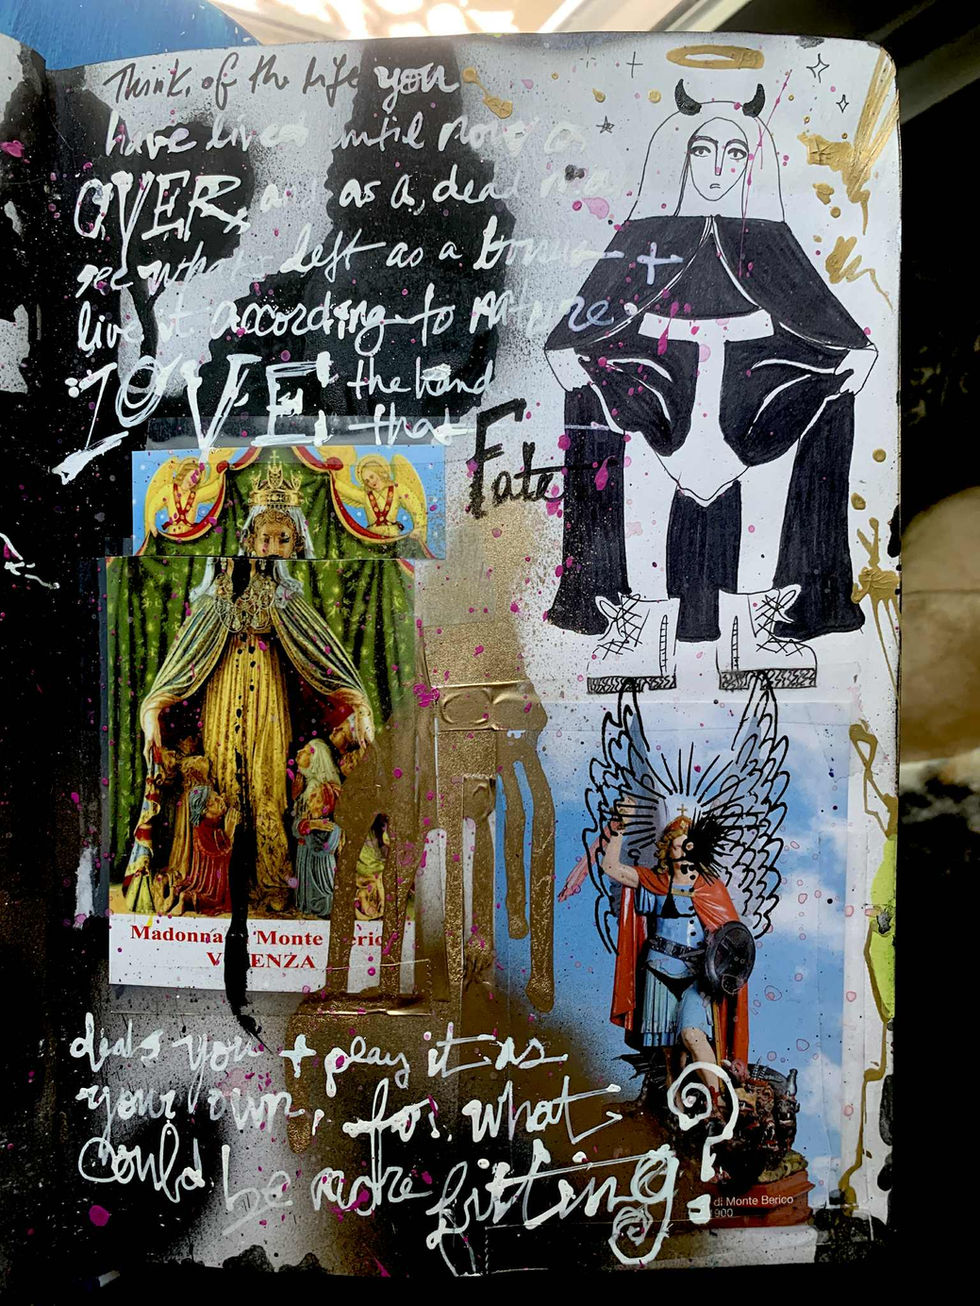 Think of the life you
have lived until now as
OVER, and as a dead man
see what's left as a bonus +
live it according to nature
LOVE the hand
that Fate
Madonna Monte Berico
VICENZA
deals you + play it as
your own, for what
could be more fitting?
di Monte Berico
900